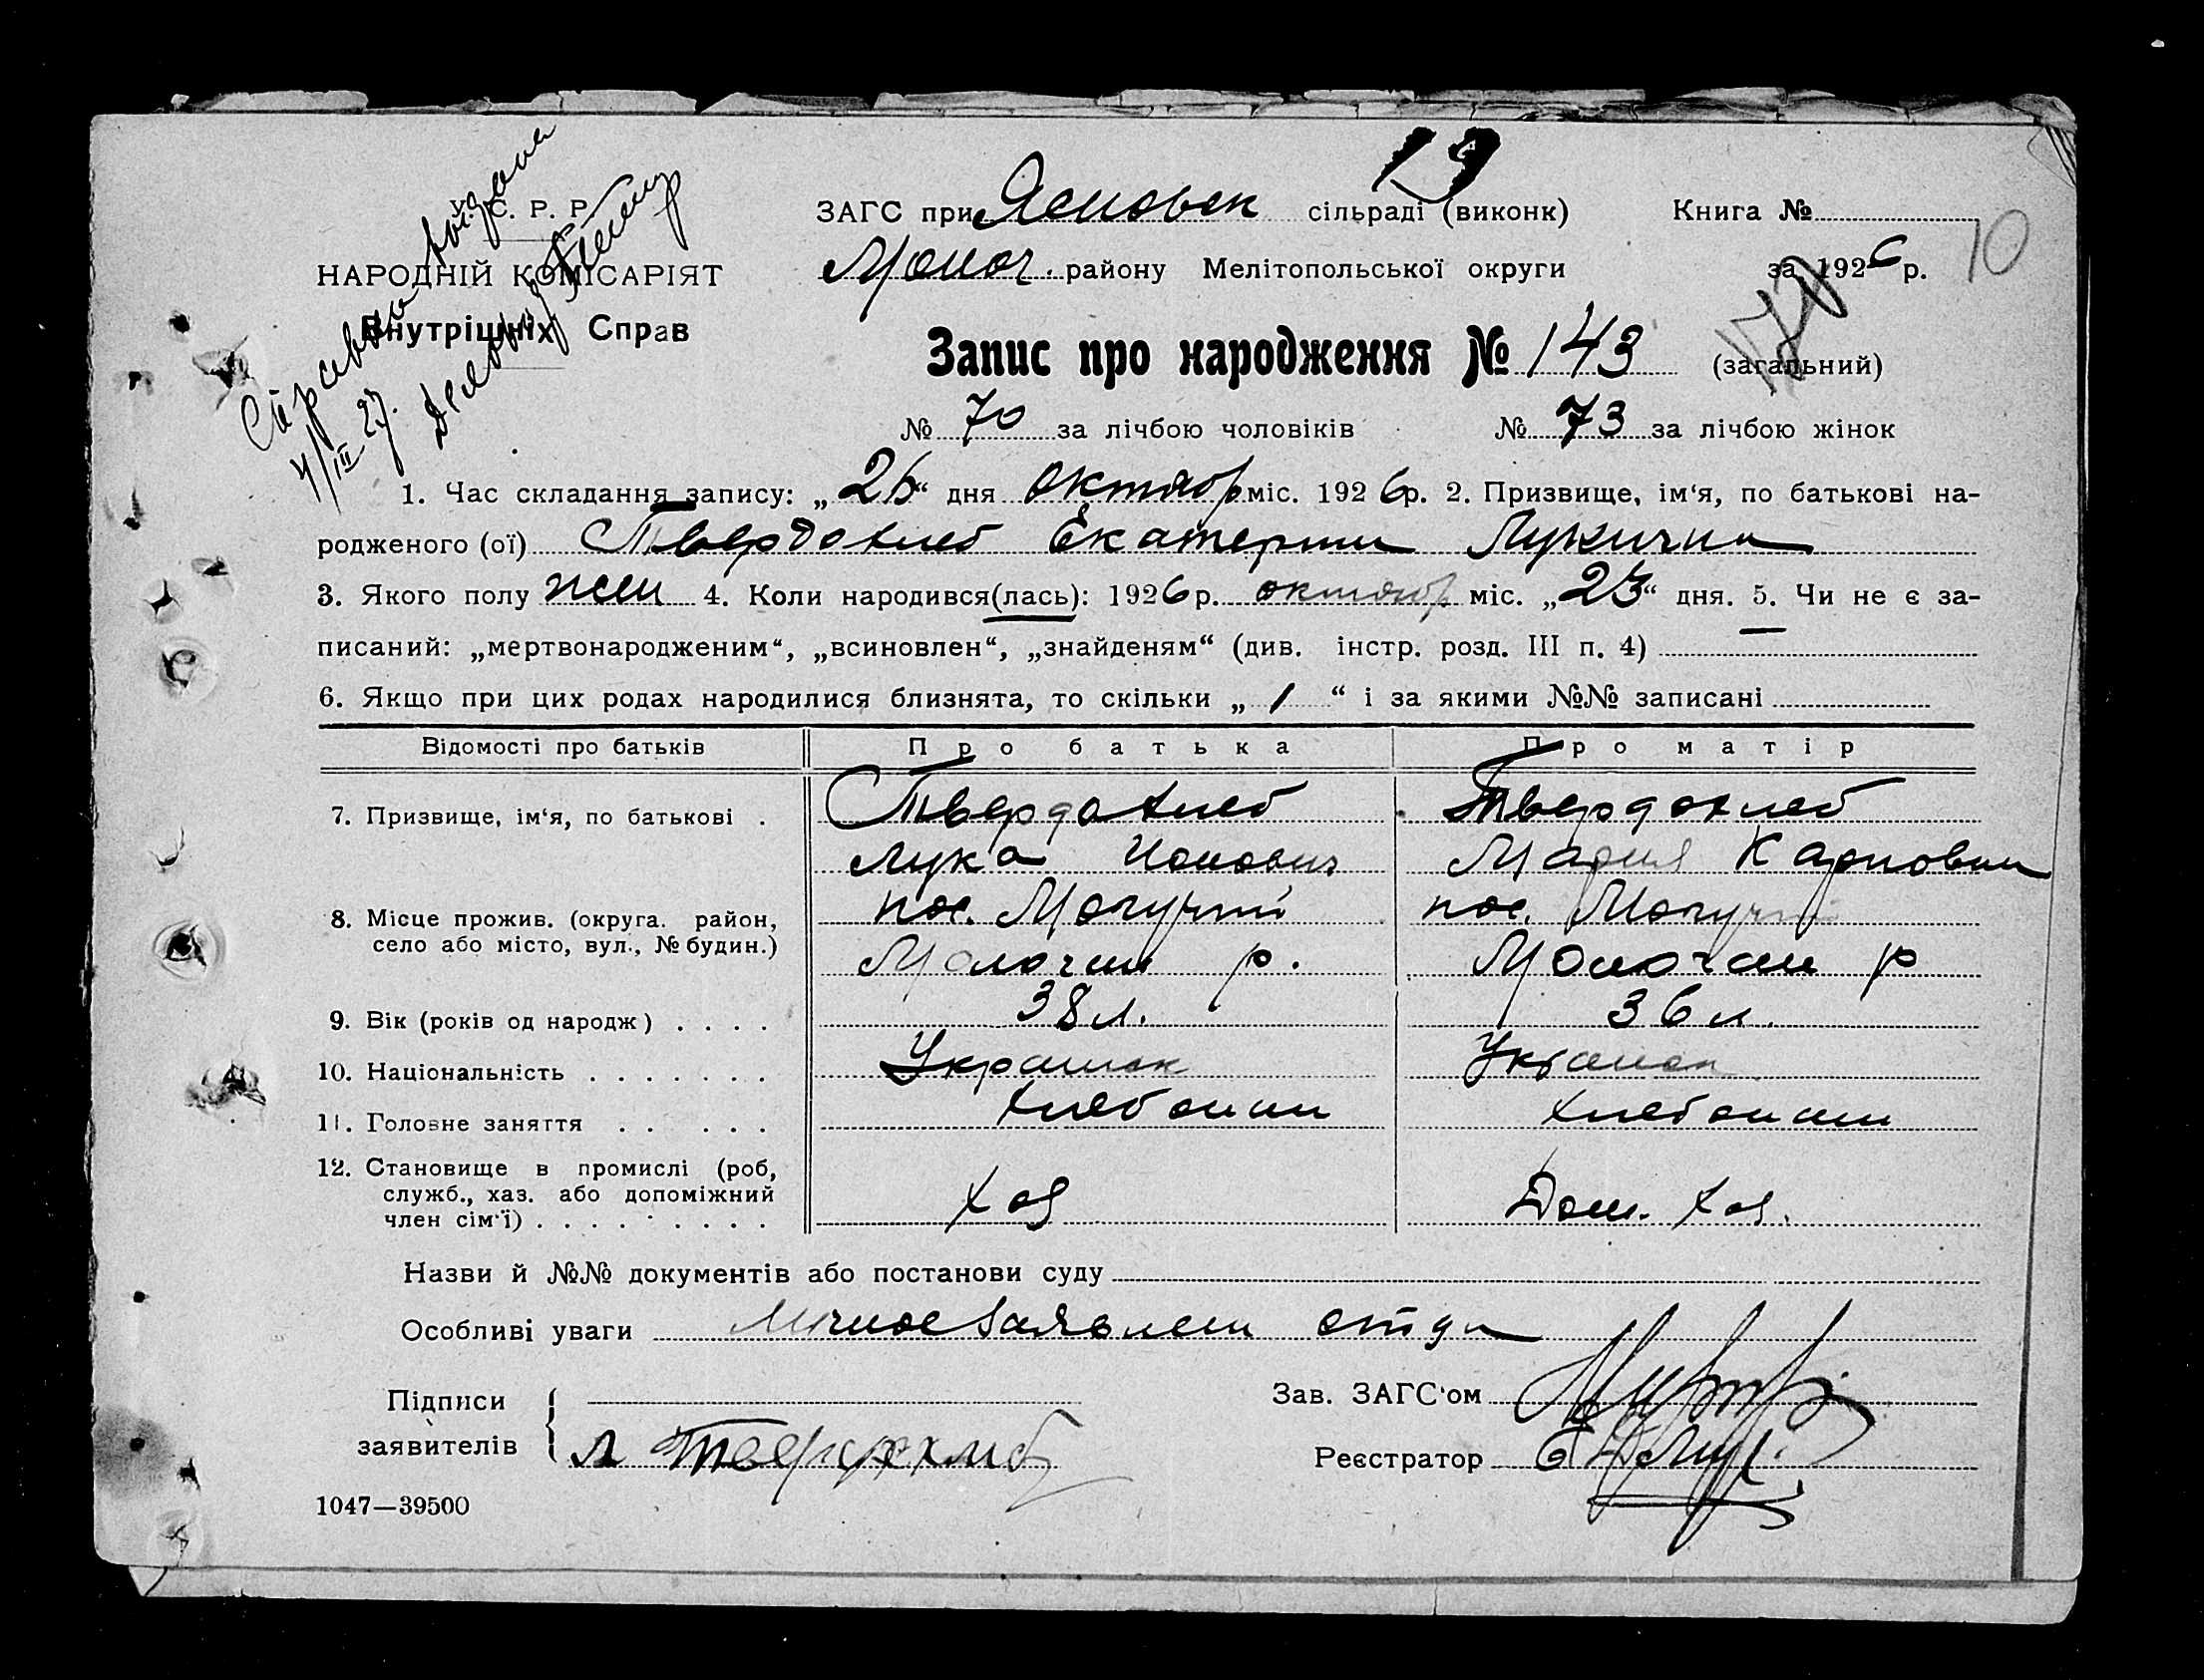 У. С. Р. Р.
НАРОДНІЙ КОМІСАРІЯТ
Внутрішніх Справ
Справка выдана
4/III 27.
19
ЗАГС при Ясновск сільраді (виконк) Книга №
10
Молоч. району Мелітопольської округи за 1926 р.
Запис про народження № 143 (загальний)
№ 70 за лічбою чоловіків № 73 за лічбою жінок
1. Час складання запису: „26“ дня октябр міс. 1926 р. 2. Призвище, ім‘я, по батькові на-
родженого (ої) Твердохлеб Екатерина Лукична
3. Якого полу жен 4. Коли народився(лась): 1926 р. октябр міс. „23“ дня. 5. Чи не є за-
писаний: „мертвонародженим“, „всиновлен“, „знайденям“ (див. інстр. розд. III п. 4) —
6. Якщо при цих родах народилися близнята, то скільки „ 1 “ і за якими №№ записані
Відомості про батьків Про батька Про матір
7. Призвище, ім‘я, по батькові . Твердохлеб Твердохлеб
Лука Ионович Мария Карповна
8. Місце прожив. (округа. район, пос. Могучий пос. Могучий
село або місто, вул., № будин.) Молочан р. Молочан р
9. Вік (років од народж) . . . . 38 л. 36 л.
10. Національність . . . . . . . Украинск Украинск
11. Головне заняття . . . . . Хлебопаш Хлебопаш
12. Становище в промислі (роб,
служб., хаз. або допоміжний Хоз Дом. Хоз.
член сім‘ї) . . . . . . . . .
Назви й №№ документів або постанови суду
Особливі уваги Личное заявлен отца
Підписи Зав. ЗАГС‘ом
заявителів Л Твердохлеб Реєстратор
1047—39500